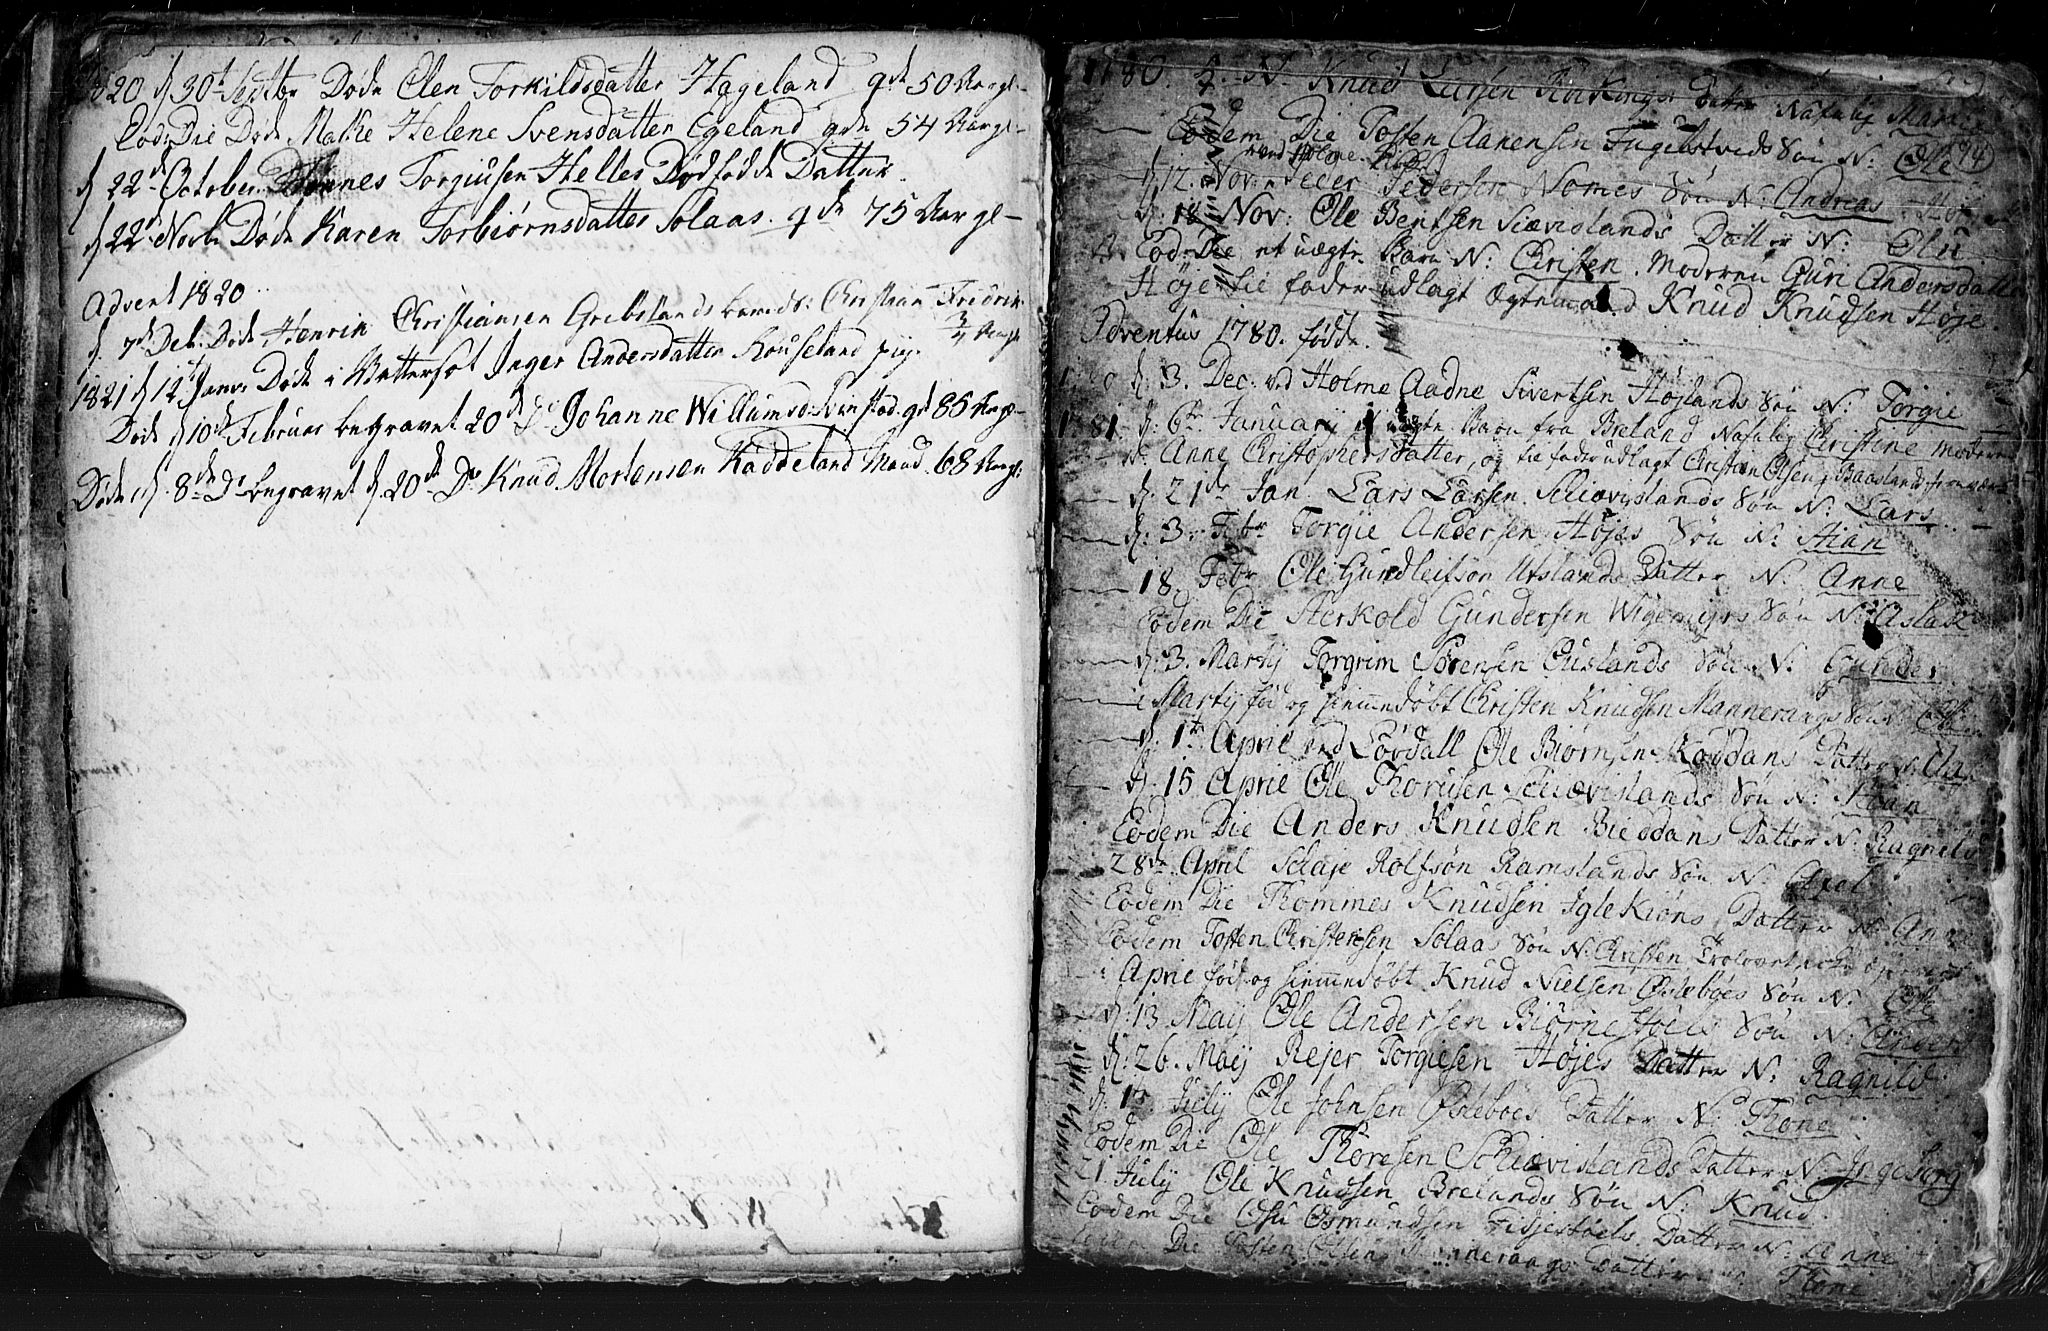 1820 d 30t Septbr Døde Elen Torkildsdatter Hageland gl 50 Aar gl
Eod: Die Døde Malke Helene Svensdatter Egeland gde 54 Aar gl
d 22de October Torgiusen Helles Dødfødde Datter
d 22de Novbr Døde Karen Torbiørnsdatter Solaas gde 75 Aar gl
Advent 1820
d. 7de Deb: Døde Henrik Christiansen Grebslands barn Christian Fredrik
3/4 Aar gl
1821 d 12t Janr Døde i Inger Andersdatter Houseland pige
Døde d 10de Februar begravet 20de Do Johanne Willumsd: gl 86 Aar gl
Døde d. 8de Do begravet d. 20de Do Knud Mortensen Raddeland Mand. 68 Aar gl:
1780. N. Knud Larsen Datter Nafnlig Mari
Eodem Die Tosten Aanensen Fugelstveds Søn N: Ole
ved Holme
94
d. 12. Nov: Peder Pedersen Nomes Søn N: Andreas
d: 18 Nov: Ole Bentsen Sciævislands Datter N: Olu
Eod: Die et uægte Barn N: Christen. Moderen Guri Andersdatter
Høje til fader udlagt Ægtemand Knud Knudsen Høje
Adventus 1780. fødde
d: 3. Dec: ved Holme Aadne Sivertsen Høslands Søn N: Torgie
1781. d: 6te January et uægte Barn fra Breland Nafnlig Christine moderen
Anne Christophersdatter, og til fader udlagt Christen Olsen Baaslands
d: 21de Jan. Lars Larsen Sciævislands Søn N: Lars
d: 3. Febr Torgie Andersen Højes Søn N: Stian
18. Febr Ole Gundleifsøn Utslands Datter N: Anne
Eodem Die Sterkold Gundersen Wigemyrs Søn N: Aslak
d: 3. Martij Torgrim Sørensen Ouslands Søn N: Gunder
i Martij fød og hiemmedøbt Christen Knudsen Mannerangs Søn
d: 1te April ved Lørdall Ole Biørnsen Røddans Datter N:
d: 15 April Ole Thorüsen Sciævislands Søn N: Stian
Eodem Die Anders Knudsen Bieddans Datter N: Ragnild
28de April Schaje Rolfsøn Ramslands Søn N: Axel
Eodem Die Thommes Knudsen Iglekiøns Datter N: Anne
Eodem Tosten Christensen Solaas Søn N: Christen
i April fød og hiemmedøbt Knud Nielsen Øsleböes Søn N: Ole
d: 13 Maij Ole Andersen Biørnestøels Søn N: Anders
d: 26. Maij Rejer Torgiesen Højes Datter N: Ragnild
d. 1te July Ole Johnsen Øsleboes Datter N: Thone
Eodem Die Ole Thoresen Schiævislands Datter N: Ingeborg
21. July Ole Knudsen Brelands Søn N: Knud
Eodem Die Osu Osmundsen Fidjestøels Datter N: Anne
Die Tosten Olsen Mannerangs Datter Thone